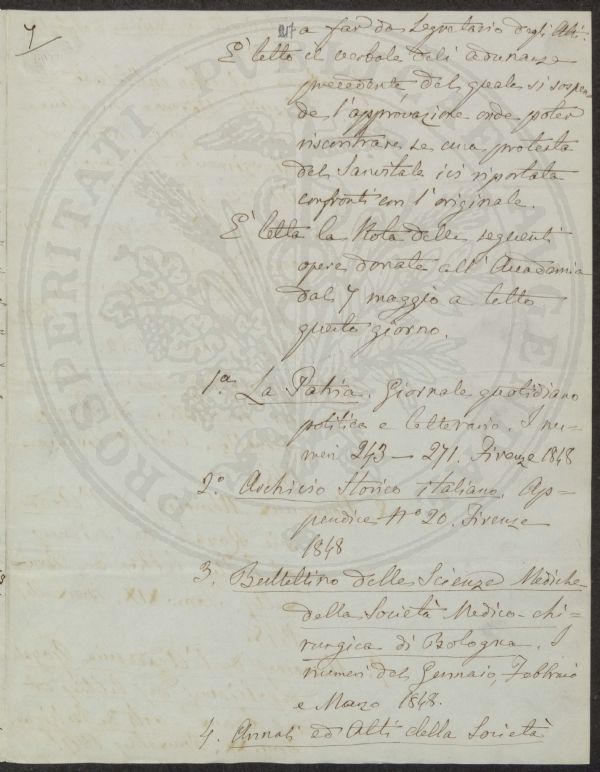 7
217
a far da Segretario degli Atti.
E' letto il verbale dell' adunanza
precedente del quale si sospen
de l'approvazione onde poter
riscontrare se una protesta
del Sanvitale ivi riportata
confronti con l'originale.
E' letta la Nota delle seguenti
opere donate all' Accademia
dal 7 maggio a tutto
questo giorno.
1.a La Patria. Giornale quotidiano
politico e letterario. I nu=
meri 243 — 271. Firenze 1848
2.o Archivio Storico italiano. Ap=
pendice No 20. Firenze
1848
3. Bullettino delle Scienze Mediche
della Società Medico-chi=
rurgica di Bologna. I
numeri del Gennaio, Febbraio
e Marzo 1848.
4. Annali ed Atti della Società
PROSPERITATI PUBLICAE AUGENDAE